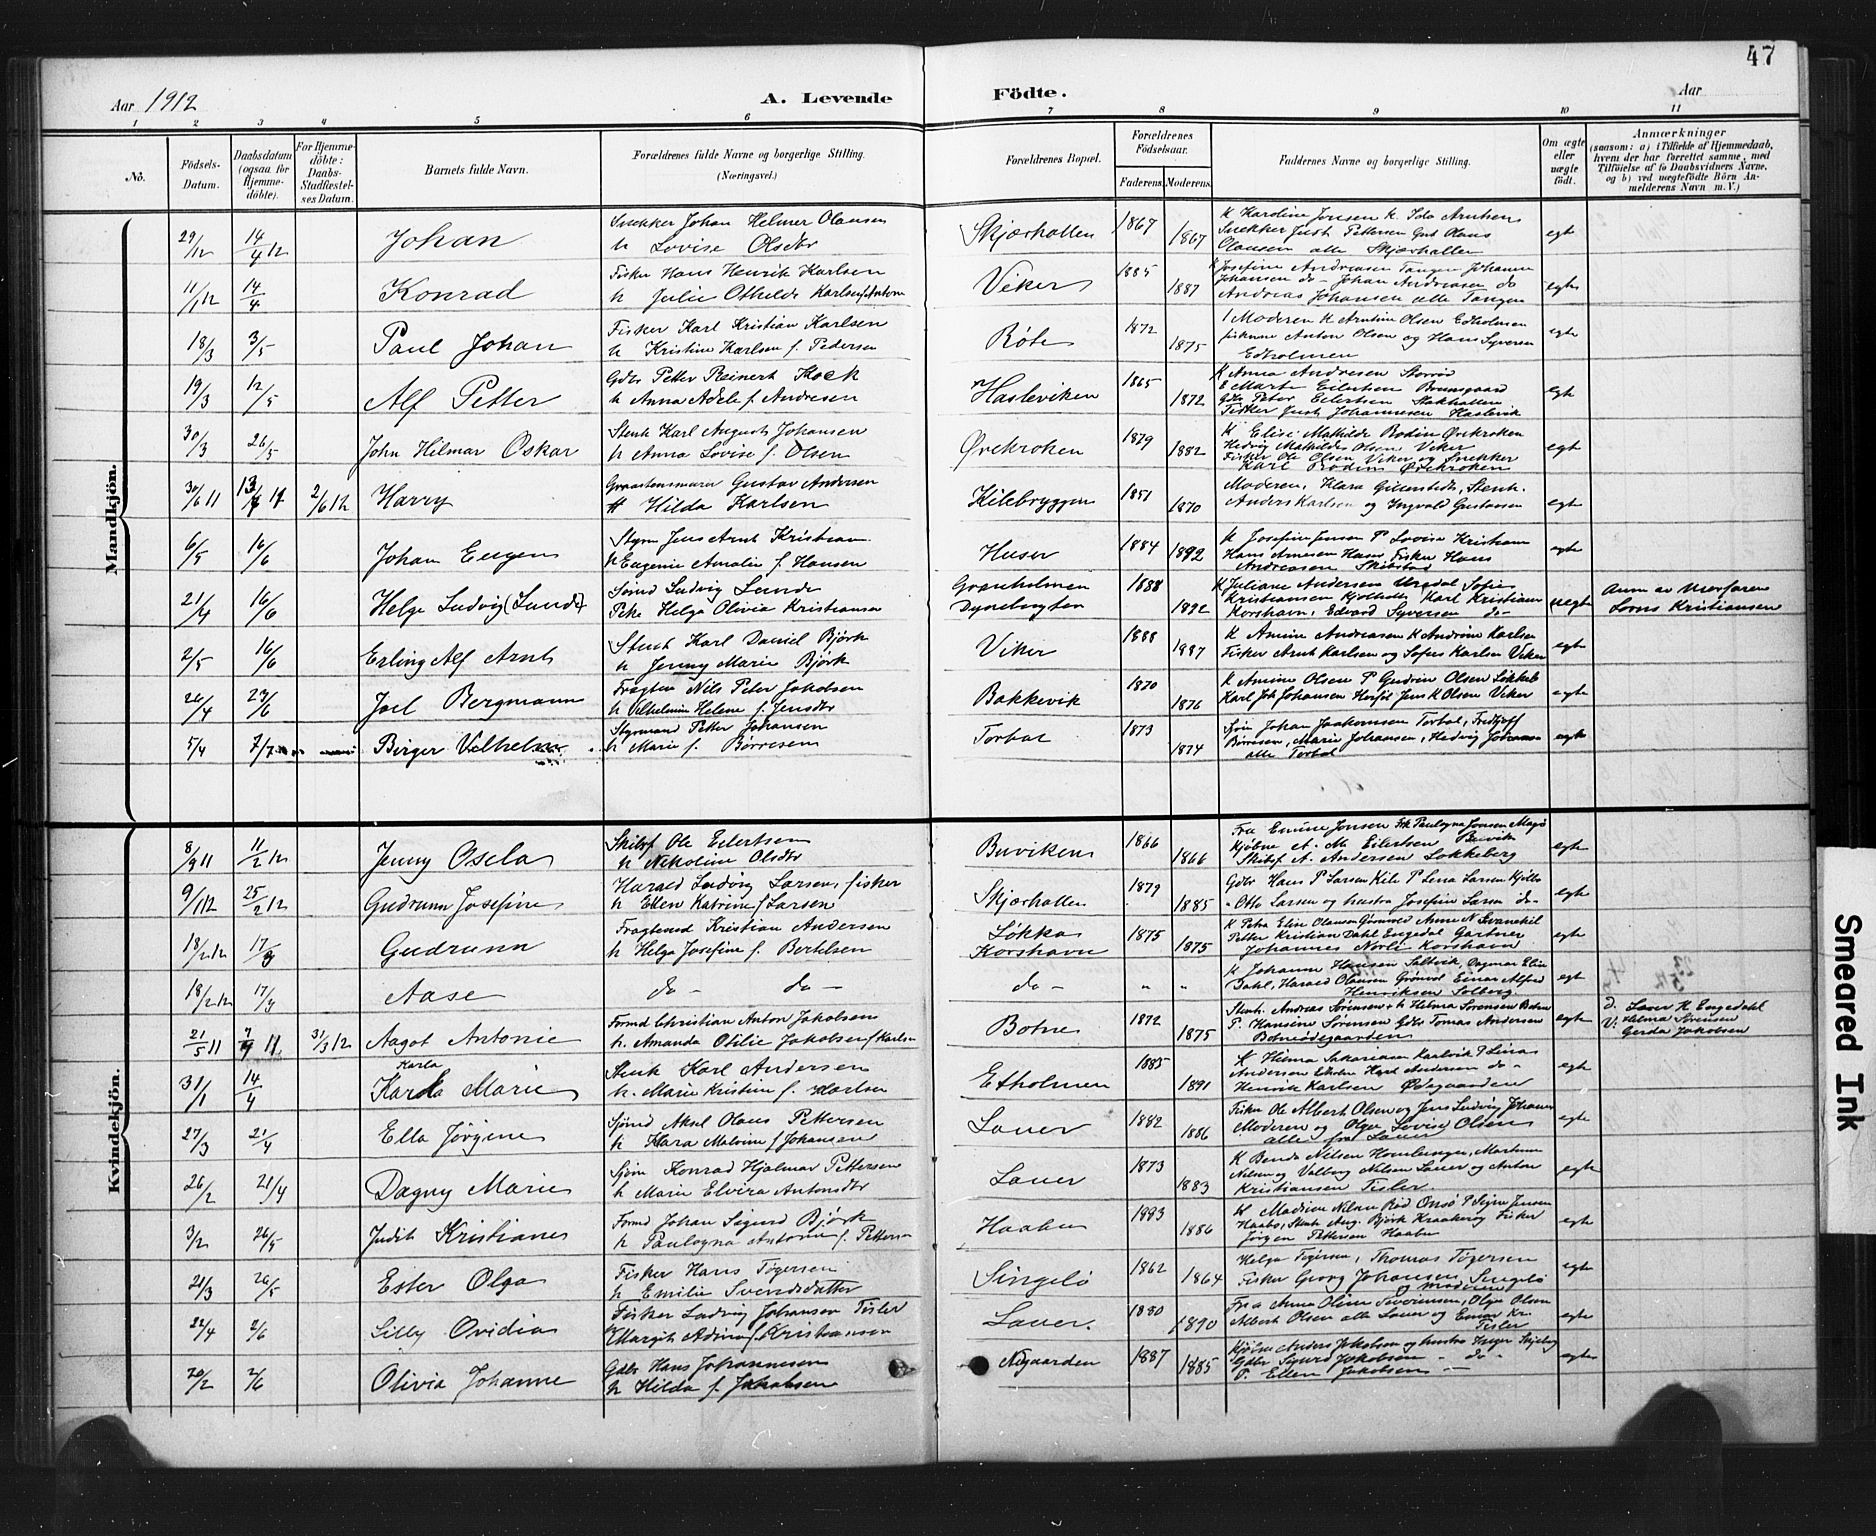 47
Aar 1912
A. Levende Födte.
Aar
1 2 3 4 5 6 7 8 9 10 11
No.
Födsels-Datum.
Daabsdatum (ogsaa for Hjemme-döbte).
For Hjemme-döbte: Daabs-Stadfæstel-ses Datum.
Barnets fulde Navn.
Forældrenes fulde Navne og borgerlige Stilling. (Næringsvei.)
Forældrenes Bopæl.
Forældrenes Födselsaar.
Faderens. Moderens.
Faddernes Navne og borgerlige Stilling.
Om ægte eller uægte födt.
Anmærkninger
(saasom: a) i Tilfælde af Hjemmedaab, hvem der har forrettet samme, med Tilföielse af to Daabsvidners Navne, og b) ved uægtefödte Börn An-melderens Navn m. V.)
Mandkjön.
29/12 14/4 12 Johan Snekker Johan Helmer Olausen
h Lovise Olsdtr Skjærhallen 1867 1867
K Karoline Jensen K. Ida Arntsen
Snekker Just Pettersen Gust Olaus
Olausen alle Skjærhallen egte
11/1 12 14/4 Konrad Fisker Hans Henrik Karlsen
h Julie Othilde Karlsen f. Anton Viker 1885 1887
K Josefine Andreasen Tangen Johanne
Johansen do - Johan Andreasen do
Andreas Johansen alle Tangen egte
18/3 3/5 Paul Johan Fisker Karl Kristian Karlsen
h Kristine Karlsen f. Pedersen Røter 1872 1875
Moderen K Arntine Olsen Edholmen
fiskerne Anton Olsen og Hans Syversen
Edholmen egte
19/3 12/5 Alf Petter Gdbr Petter Reinert Kock
h Anna Adele f. Andresen Hasleviken 1865 1872
K Anna Andresen Storrød
E Marte Eilertsen Brunsgaard
Gdb Peter Eilertsen Stokhallen
Fisker Just Johannesen Haslevik egte
30/3 26/5 John Hilmar Oskar Stenh Karl August Johansen
h Anna Lovise f. Olsen Ørekroken 1879 1882
K Elise Mathilde Bodin Ørekroken
Hedvig Mathilde Olsen Viker
Fisker Ole Olsen Viker og Snekker
Karl Bodin Ørekroken egte
30/6 11 13/7 11 2/6 12 Harry Gustav Andersen
H Hilda Karlsen Kilebryggen 1851 1870
Moderen, Klara Gillerstedt, Stenh.
Anders Karlsen og Ingvald Gustavsen egte
6/5 16/6 Johan Eugen Styrm Jens Arnt Kristian
h Eugenie Amalie f. Hansen Huser 1884 1892
K Josefine Jensen P Lovise Kristians
Hans Arnesen Huser Fisker Hans
Andreasen Skibstad egte
21/4 16/6 Helge Ludvig (Lunde) Sømd Ludvig Lunde
Pike Helga Olivia Kristiansen Grønholmen
Dynebugten 1888 1892
K Juliane Andersen Urødal Sofie
Kristiansen Kjølholt, Karl Kristian
Korshavn, Edvard Syversen do - uegte
Anm av Morfaren
Lorns Kristiansen
2/5 16/6 Erling Alf Arnt Stenh Karl Daniel Bjørk
h Jenny Marie Bjørk Viker 1888 1887
K Amine Andreasen K Andrine Karlsen
Fisker Arnt Karlsen og Sofus Karlsen Viker egte
26/4 23/6 Joel Bergmann Fragtem Nils Peter Jakobsen
h Vilhelmine Helene f. Jensdtr Bakkevik 1870 1876
K Amine Olsen P Gudrun Olsen Løkkeb
Karl Joh Johansen Herføl Jens K Olsen Viker egte
5/4 7/7 Birger Vilhelm Styrmand Petter Johansen
h Marie f. Børresen Torbal 1873 1874
Sjøm Johan Jaakomsen Torbal, Fridtjof
Børresen, Marie Johansen, Hedvig Johansen
alle Torbal egte
Kvindekjön.
8/9 11 11/2 12 Jenny Osela Skibsf Ole Eilertsen
h Nikoline Olsdtr Buviken 1866 1866
Fru Emine Jensen Frk Paulogna Jensen Magø
Kjøbm A. M. Eilertsen Buvik
Skibsf A. Andersen Løkkeberg egte
9/1 12 25/2 12 Gudrunn Josefine Harald Ludvig Larsen, fisker
h Ellen Katrine f Larsen Skjærhallen 1879 1885
Gdbr Hans P Larsen Kile P Lina Larsen Kjølbo
" Otto Larsen og hustru Josefine Larsen do - egte
18/2 12 17/3 Gudrunn Fragtemd Kristian Andersen
h Helga Josefine f. Bertelsen Løkka
Korshavn 1875 1875
K Petra Elise Olausen Grønvold Anne N Svanekil
Petter Kristian Dahl Engedal Gartner
Johannes Norli Korshavn egte
18/2 12 17/3 Aase do - do - do - " "
K Johanne Hansen Saltvik, Dagmar Elise
Dahl, Harald Olausen Grønvol Einar Alfred
Henriksen Solberg egte
21/5 11 7/7 11 31/3 12 Aagot Antonie Formd Christian Anton Jakobsen
h. Amanda Otilie Jakobsen f Karlsen Botne 1872 1875
Stenh. Andreas Sørensen + h Helma Sørensen Botne
P. Hansine Sørensen Gdbr Tomas Andersen
Botneødegaarden egte
D. Laver K Engedahl
V. Helma Sørensen
Gerda Jakobsen
31/1 14/4 Karla
Karla Marie Stenh Karl Andersen
h. Marie Kristine f. Karlsen Etholmen 1885 1891
K Helma Sakariasen Kaalvik P Lina
Andersen Etholm Hart Andersen do -
Henrik Karlsen Ødegaarden egte
27/3 21/4 Ella Jørgine Sjømd Aksel Olaus Pettersen
h Klara Malvine f Johansen Lauer 1882 1886
Fisker Ole Albert Olsen og Jens Ludvig Johansen
Moderen og Olga Lovise Olsen
alle fra Lauer egte
26/2 21/4 Dagny Marie Sjøm Konrad Hjalmar Pettersen
h Marie Elvira Antonsdtr Lauer 1873 1883
K Benda Nilsen Homlungen, Martinus
Nilsen og Valborg Nilsen Lauer og Anton
Kristiansen Tisler. egte
3/2 26/5 Judit Kristiane Formd Johan Sigurd Bjørk
h Paulogna Antonie f. Pettersen Haaben 1883 1886
K Madsine Nilsen Rød Onsø P Signe Jensen
Haabø, Stenh Aug. Bjørk Kraakerøy Fisker
Jørgen Pettersen Haaben egte
21/3 26/5 Ester Olga Fisker Hans Tøgersen
h Emilie Svendsdatter Singelø 1862 1864
Helga Tøgersen, Thomas Tøgersen
Fisker Georg Johansen Singelø
og moderen egte
22/4 2/6 Lilly Ovidia Fisker Ludvig Johansen Tisler
h Margit Adina f. Kristiansen Lauer. 1880 1890
Fru Anna Oline Severinsen, Olga Olsen
Albert Olsen alle Lauer og Einar Kr.
Tisler egte
20/2 2/6 Olivia Johanne Gdbr Hans Johannesen
h Hilda f. Jakobsen Nygaarden 1887 1885
Kjøbm Anders Jakobsen og hustru Inger Skjeberg
Gdbr Sigurd Jakobsen - do -
P. Ellen Jakobsen - egte
Smeared Ink